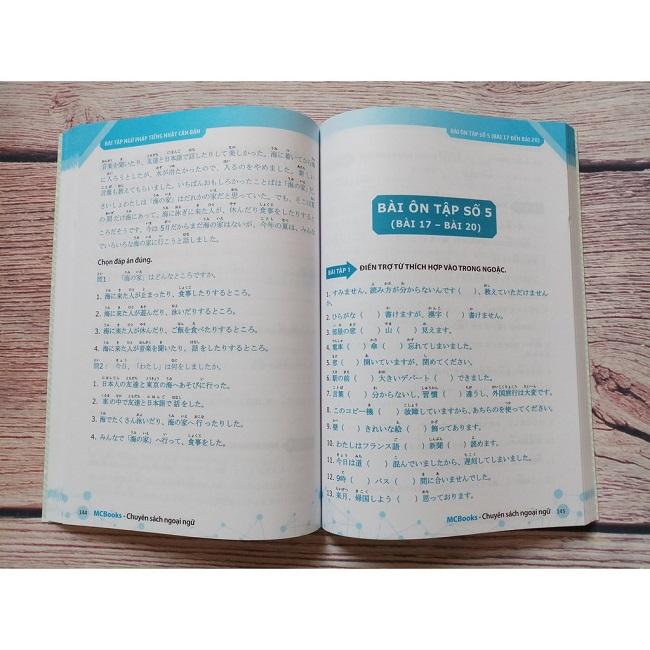 BÀI TẬP NGỮ PHÁP TIẾNG NHẬT CĂN BẢN
音楽を聞いたり、友達と日本語で話したりして 美しかった。海に着いてから海
に入ろうとしたが、水が冷たかったので、入るのをやめました。新しい
言葉も教えてもらいました。いちばんおもしろかったことばは「海の家」
さいしょわたしは「海の家」はだれかの家だと思っていた。でも、そこは夏
の間だけ海にあって、海に泳ぎに来た人が、休んだり食事をしたりすると
ころだそうです。今は5月だからまだ海の家はないが、今年の夏は、みんな
でいろいろな海の家に行こうと話しました。
Chọn đáp án đúng.
問1：「海の家」はどんなところですか。
1. 海に来た人が止まったり、食事したりするところ。
2. 海に来た人が遊んだり、泳いだりするところ。
3. 海に来た人が休んだり、ご飯を食べたりするところ。
4. 海に来た人が音楽を聞いたり、話をしたりするところ。
問2：今日、「わたし」は何をしましたか。
1. 日本人の友達と東京の海へあそびに行った。
2. 車の中で友達と日本語で話をした。
3. 海でたくさん泳いだり、海の家へ行ったりした。
4. みんなで「海の家」へ行って、食事をした。
144 MCBooks - Chuyên sách ngoại ngữ
BÀI ÔN TẬP SỐ 5 (BÀI 17 ĐẾN BÀI 20)
BÀI ÔN TẬP SỐ 5
(BÀI 17 – BÀI 20)
BÀI TẬP 1 ĐIỀN TRỢ TỪ THÍCH HỢP VÀO TRONG NGOẶC.
1. すみません、読み方が分からないんです（　）、教えていただけません
か。
2. ひらがな（　）書けますが、漢字（　）書けません。
3. 部屋の窓（　）山（　）見えます。
4. 電車（　）傘（　）忘れてしまいました。
5. 窓（　）開いていますが、閉めてください。
6. 駅の前（　）大きいデパート（　）できました。
7. 言葉（　）分からないし、習慣（　）違うし、外国旅行は大変です。
8. このコピー機（　）故障していますから、あちらのを使ってください。
9. 壁（　）きれいな絵（　）飾ってあります。
10. わたしはフランス語（　）新聞（　）読めます。
11. 今日は道（　）混んでいましたから、遅刻してしまいました。
12. 9時（　）バス（　）間に合いませんでした。
13. 来月、帰国しよう（　）思っております。
MCBooks - Chuyên sách ngoại ngữ 145